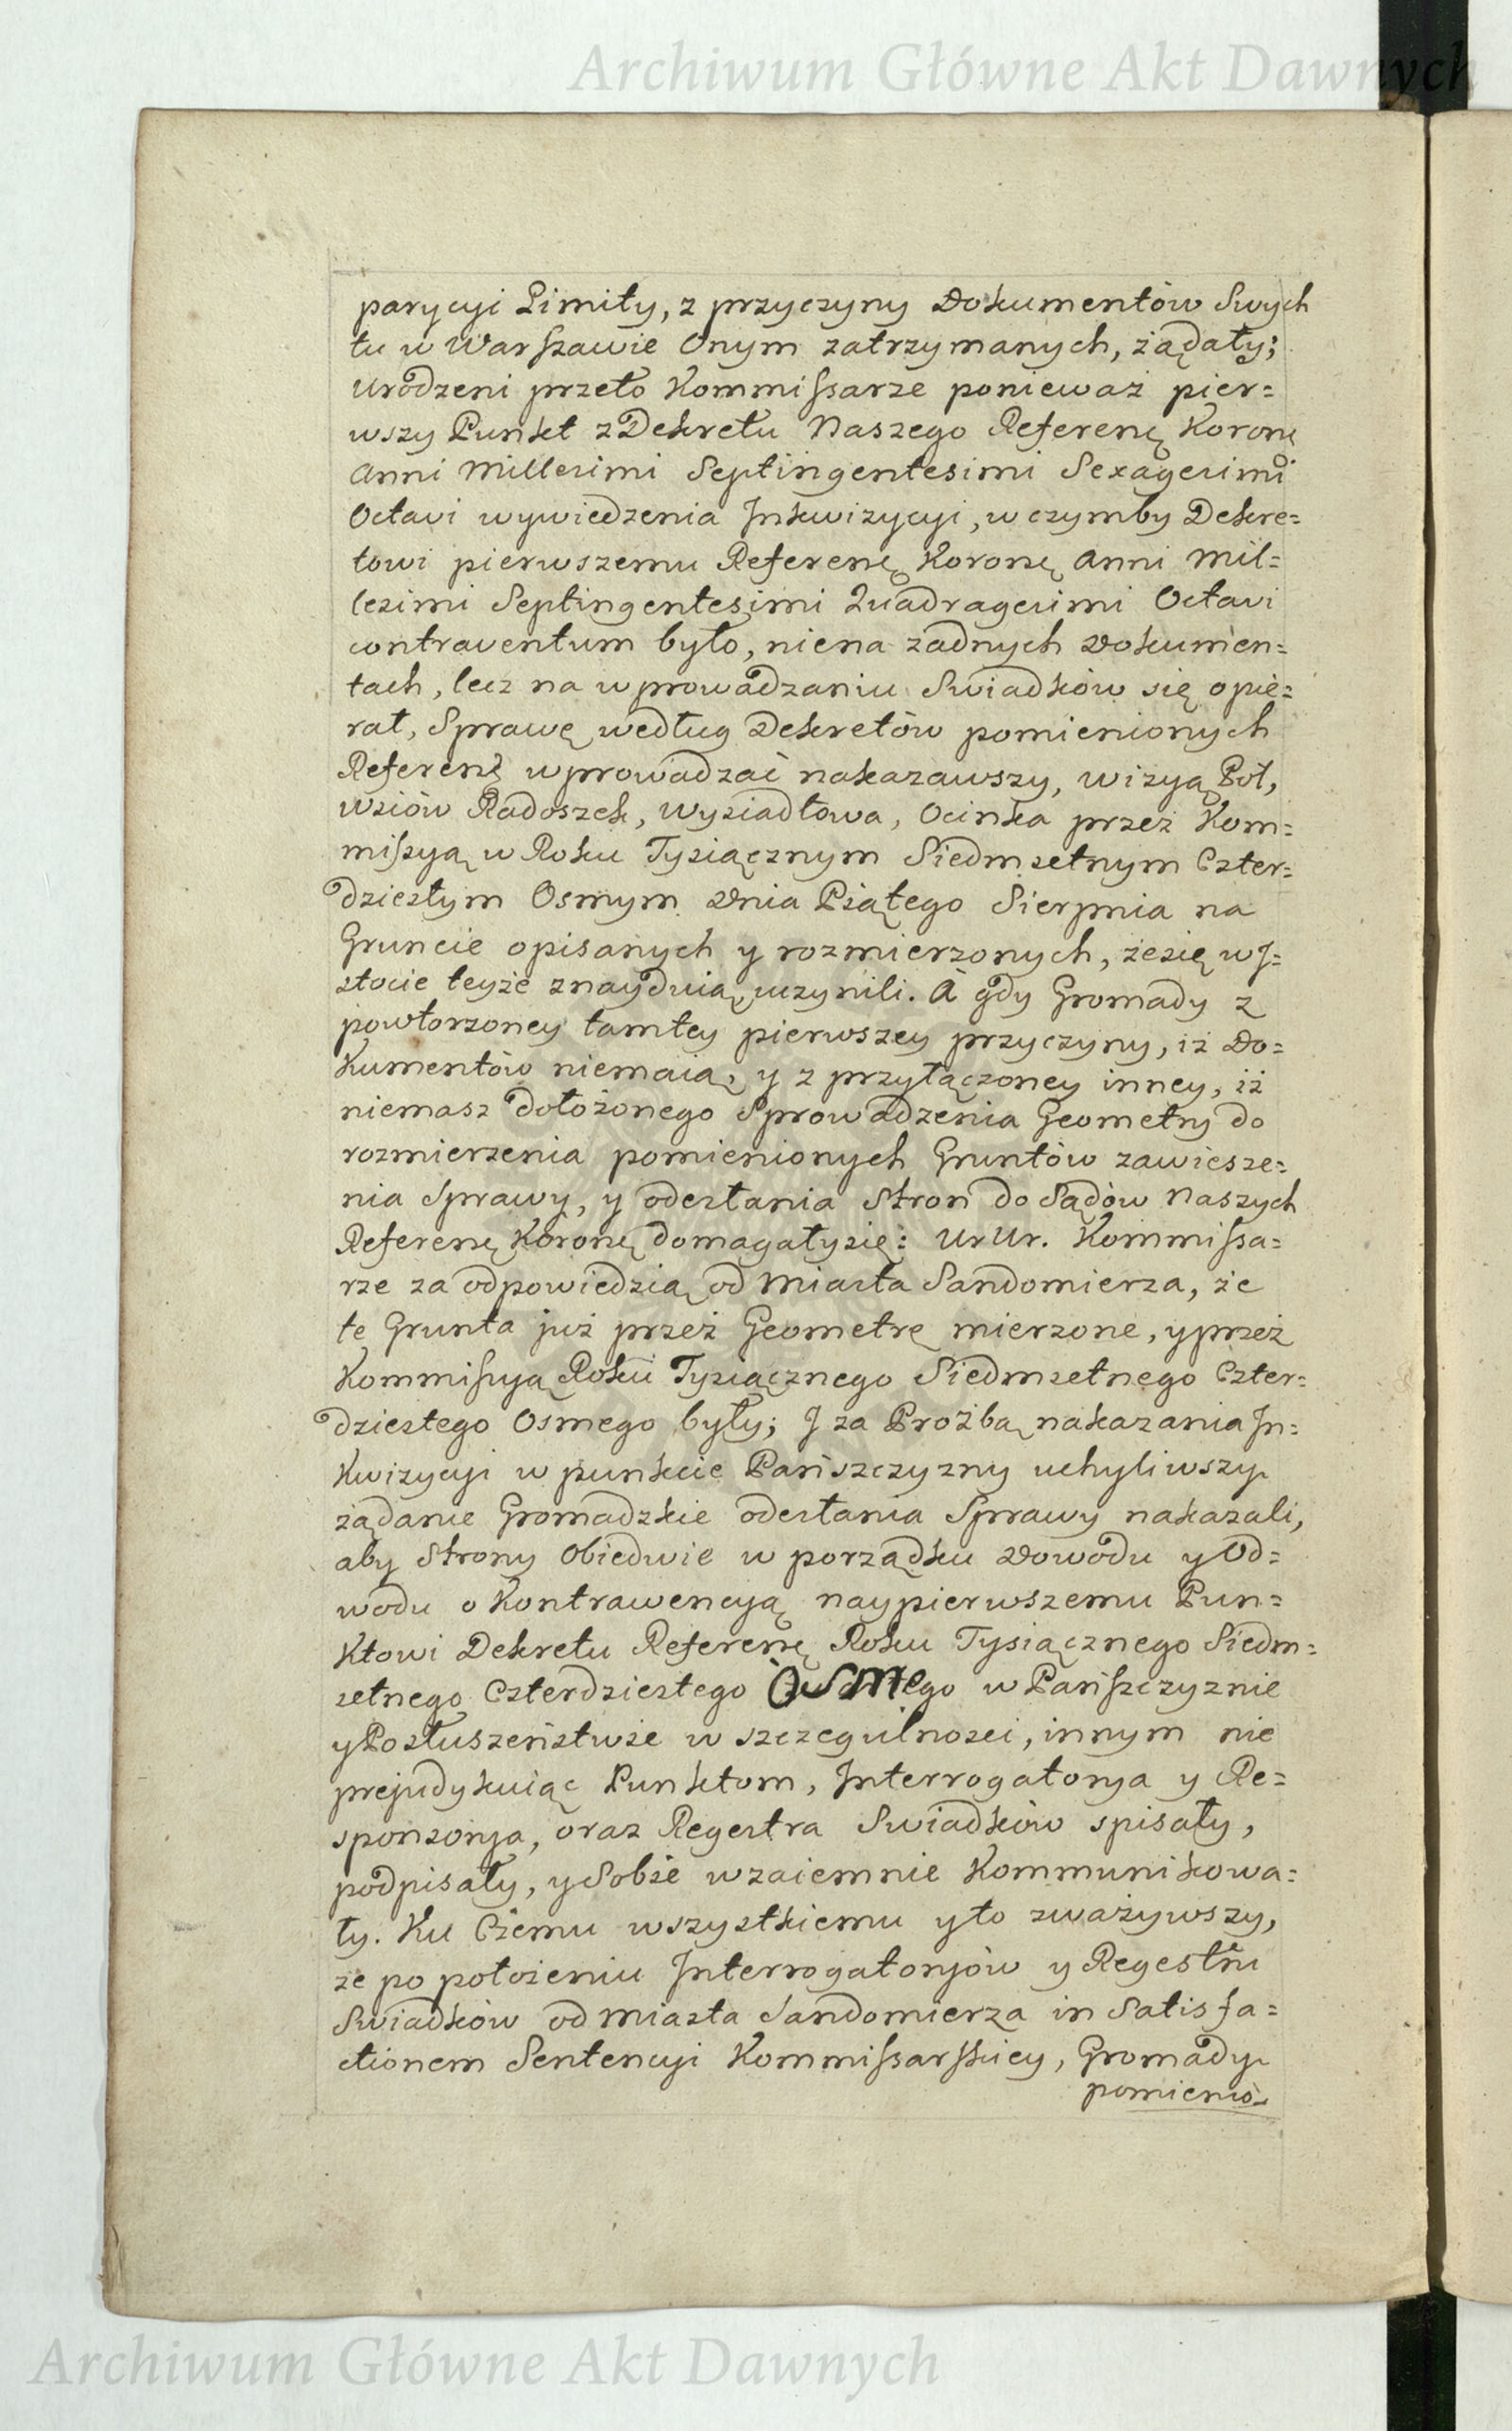 Archiwum Główne Akt Dawnych
parycyi Limity, z przyczyny Dokumentów Swych
tu w Warszawie Onym zatrzymanych, żądały;
Urodzeni przeto Kommissarze ponieważ pier=
wszy Punkt z Dekretu Naszego Referenę Koronę
Anni Millesimi Septingentesimi Sexagesimi
Octavi wywiedzenia Inkwizycyi, w czymby Dekre=
towi pierwszemu Referenę Koronę Anni Mil=
lesimi Septingentesimi Quadragesimi Octavi
contraventum było, niena żadnych Dokumen=
tach, lecz na wprowadzaniu Swiadków się opie=
rał, Sprawę według Dekretów pomienionych
Referenę wprowadzać nakazawszy, wizyą Pól,
wsiów Radoszek, Wysiadłowa, Ocinka przez Kom=
missyą w Roku Tysiącznym Siedmsetnym Czter=
dziestym Osmym dnia Piątego Sierpnia na
Gruncie opisanych y rozmierzonych, żesię w I=
stocie teyże znayduią, uczynili. A gdy Gromady z
powtorzoney tamtey pierwszey przyczyny, iż Do=
kumentów niemaią, y z przyłączoney inney, iż
niemasz dołożonego Sprowadzenia Geometry do
rozmierzenia pomienionych Gruntów zawiesze=
nia Sprawy, y odesłania Stron do Sądów Naszych
Referenę Koronę domagałysię: UrUr. Kommissa=
rze za odpowiedzią od Miasta Sandomierza, że
te Grunta już przez Geometrę mierzone, y przez
Kommissyą Roku Tysiącznego Siedmsetnego Czter=
dziestego Osmego były; I za Prożbą nakazania In=
kwizycyi w punkcie Pańszczyzny uchyliwszy
żądanie Gromadzkie odesłania Sprawy nakazali,
aby Strony Obiedwie w porządku Dowodu y Od=
wodu o Kontrawencyą naypierwszemu Pun=
ktowi Dekretu Referenę Roku Tysiącznego Siedm=
setnego Czterdziestego Osmego w Pańszczyznie
y Posłuszeństwie w szczegulnosci, innym nie
prejudykuiąc Punktom, Interrogatorya y Re=
sponsorya, oraz Regestra Swiadków spisały,
podpisały, y Sobie wzaiemnie Kommunikowa=
ły. Ku Czemu wszystkiemu y to zważywszy,
że po położeniu Interrogatoryów y Regestru
Swiadków od Miasta Sandomierza in Satisfa=
ctionem Sentencyi Kommissarskiey, Gromady
pomienio-
Archiwum Główne Akt Dawnych